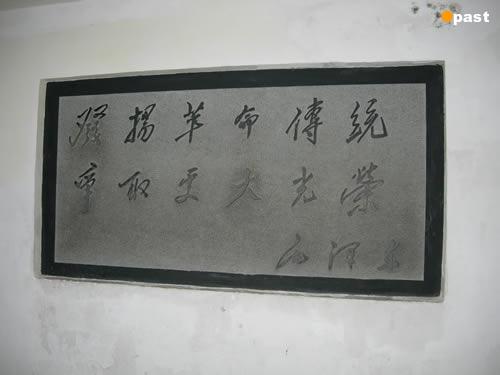 past
發揚革命傳統
爭取更大光榮
毛澤東